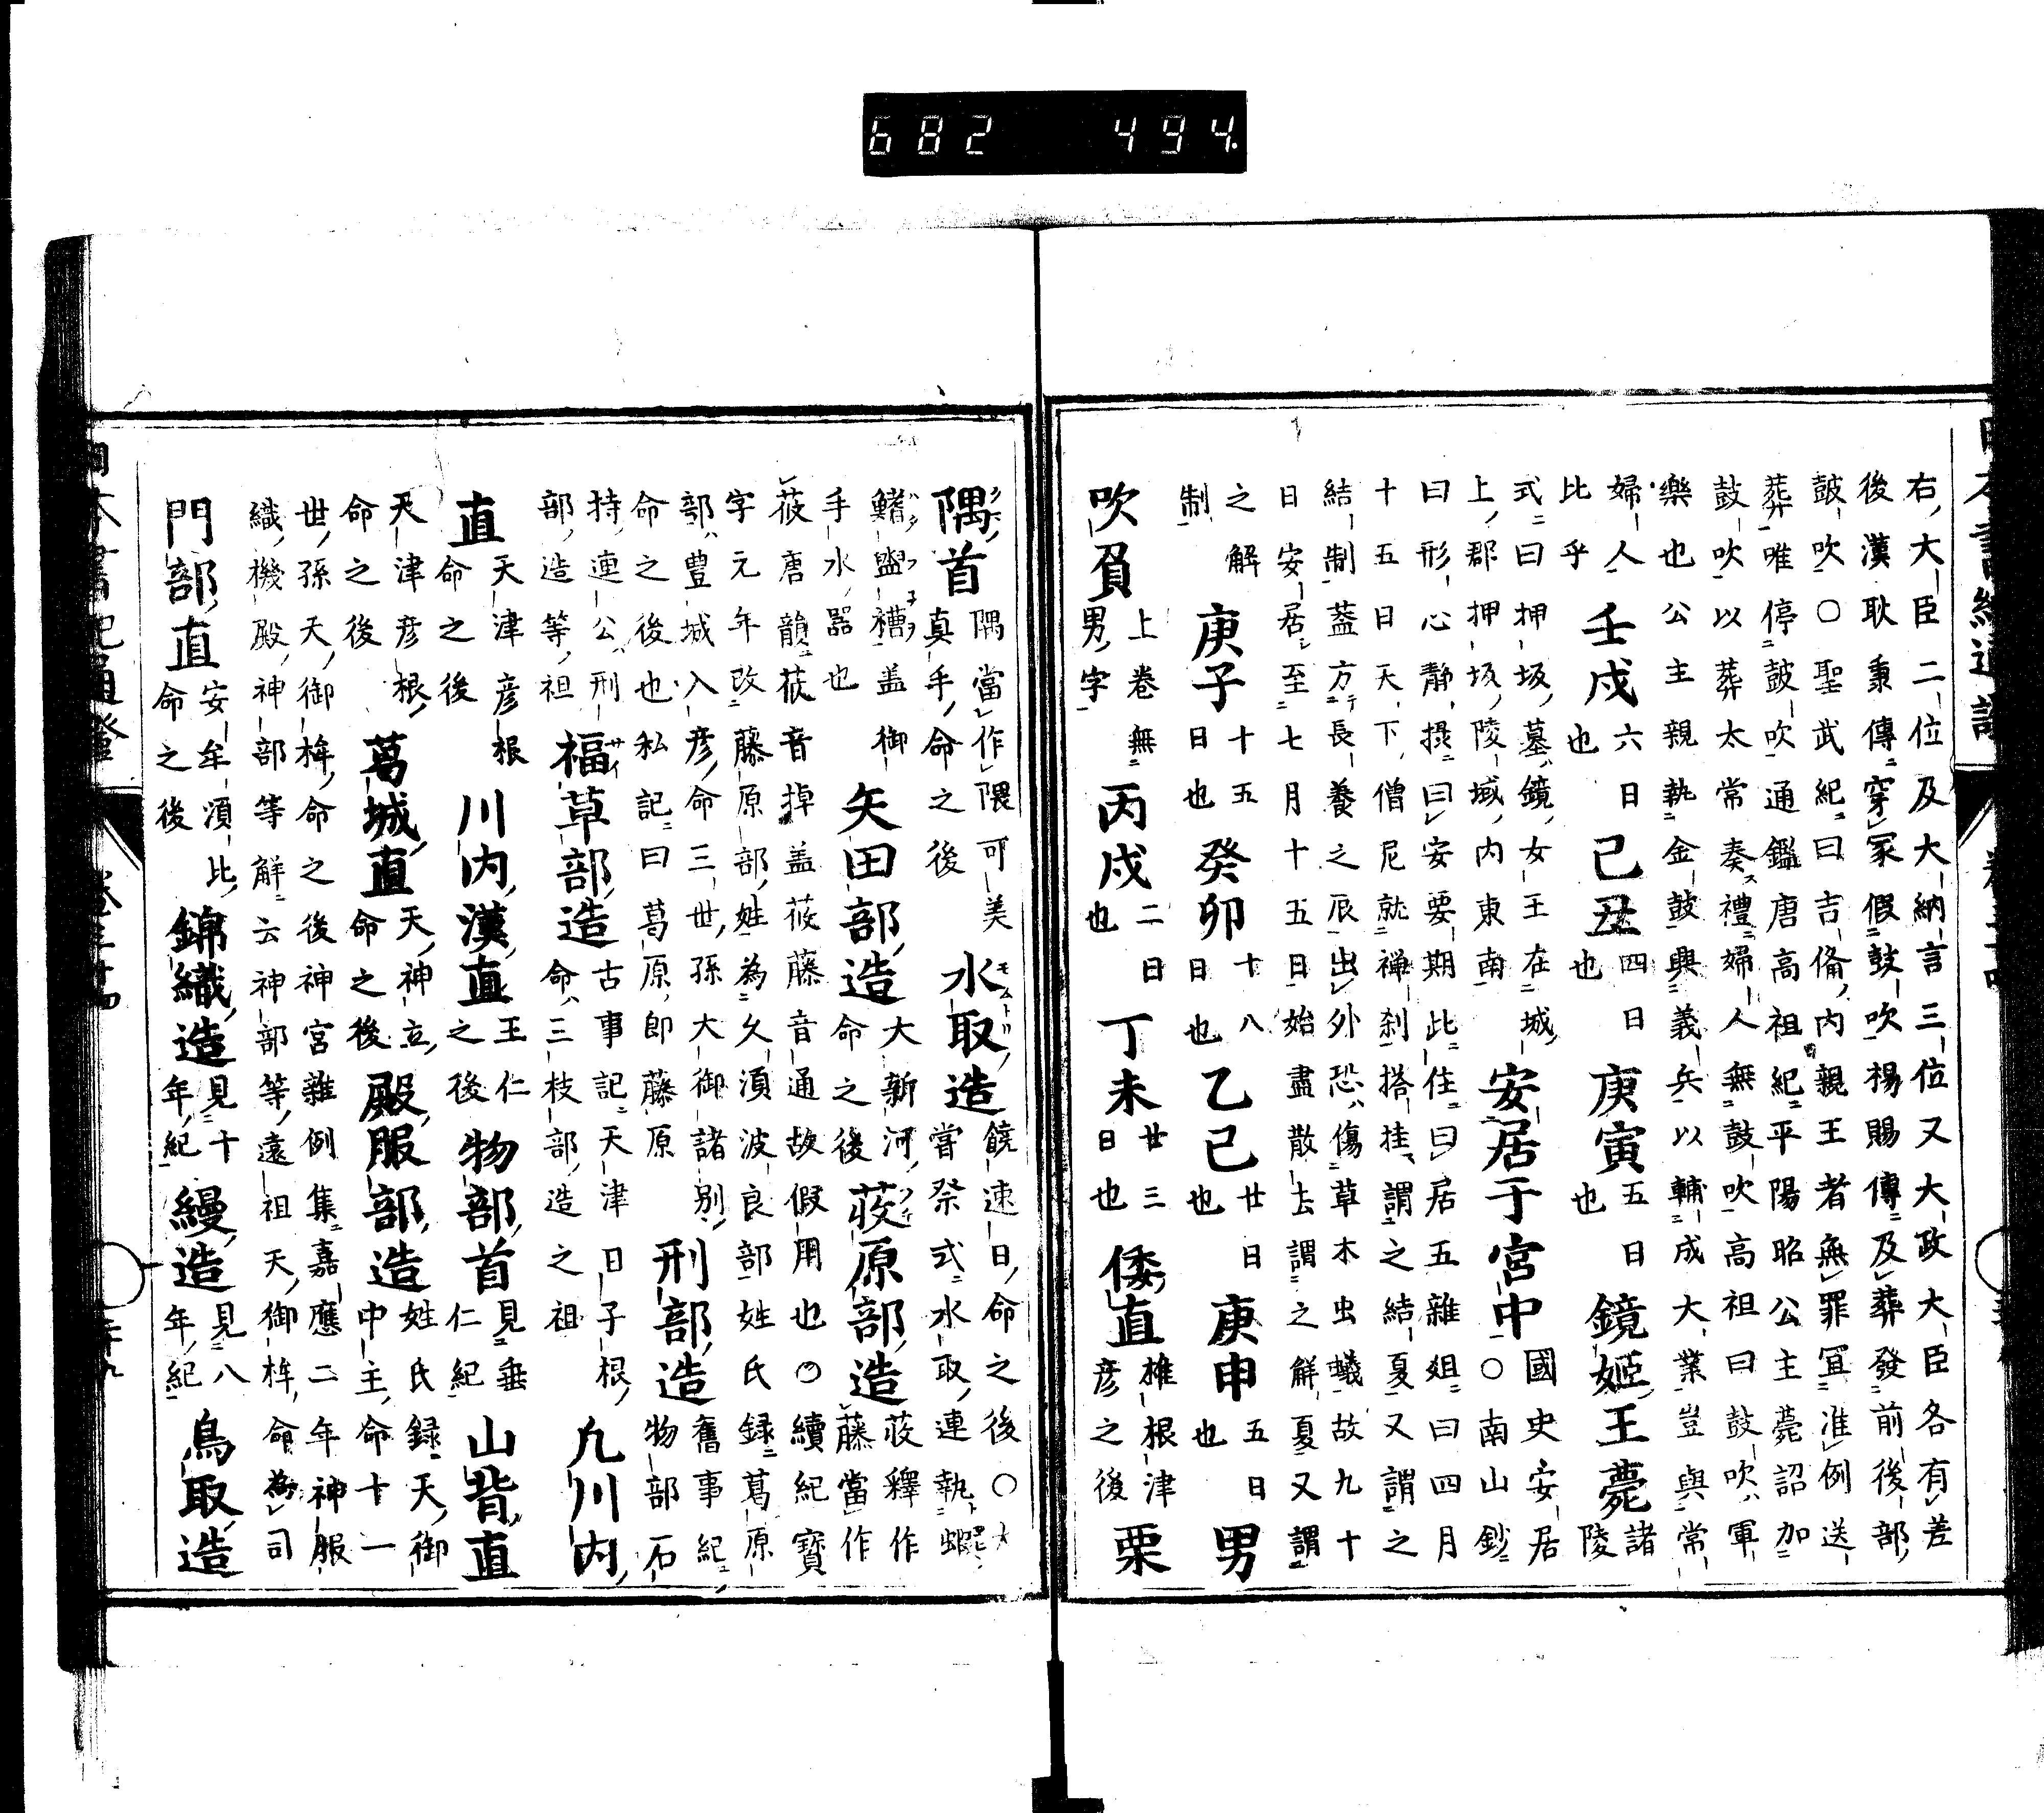 682 494.
右大臣二位及大納言三位又大政大臣各有差
後漢耿秉傳穿冢假鼓吹楊賜傳及葬發前後部
皷吹○聖武紀曰吉備内親王者無罪宜准例送
葬唯停皷吹通鑑唐高祖紀平陽昭公主薨詔加
鼓吹以葬太常奏禮婦人無鼓吹高祖曰鼓吹軍
樂也公主親執金鼓興義兵以輔成大業豈與常
婦人
比乎
壬戌
六日
也
己丑
四日
也
庚寅
五日
也
鏡姬王薨
諸陵
式曰押坂墓鏡女王在城
上郡押坂陵域内東南
安居于宮中
國史安居
○南山鈔
曰形心静摂曰安要期此住曰居五雜俎曰四月
十五日天下僧尼就禅刹搭挂謂之結夏又謂之
結制蓋方長養之辰出外恐傷草木虫蟻故九十
日安居至七月十五日始盡散去謂之解夏又謂
之解
制
庚子
十五
日也
癸卯
十八
日也
乙巳
廿日
也
庚申
五日
也
男
吹負
上卷無
男字
丙戌
二日
也
丁未
廿三
日也
倭直
椎根津
彦之後
栗
隅首
隅當作隈可美
真手命之後
水取造
饒速日命之後○大
嘗祭式水取連執
鰭盥槽盖御
手水器也
矢田部造
大新河
命之後
莈原部造
莈釋作
藤當作
莈唐韻莈音掉盖莈藤音通故假用也○續紀寳
字元年改藤原部姓為久湏波良部姓氏録葛原
部豊城入彦命三世孫大御諸別
命之後也私記曰葛原即藤原
刑部造
舊事紀
物部石
持連公刑
部造等祖
福草部造
古事記天津日子根
命三枝部造之祖
九川内
直
天津彦根
命之後
川内漢直
王仁
之後
物部首
見垂
仁紀
山背直
天津彦根
命之後
葛城直
天神立
命之後
殿服部造
姓氏録天御
中主命十一
世孫天御桙命之後神宮雜例集嘉應二年神服
織機殿神部等解云神部等遠祖天御桙命為司
門部直
安牟湏比
命之後
錦織造
見十
年紀
縵造
見八
年紀
鳥取造